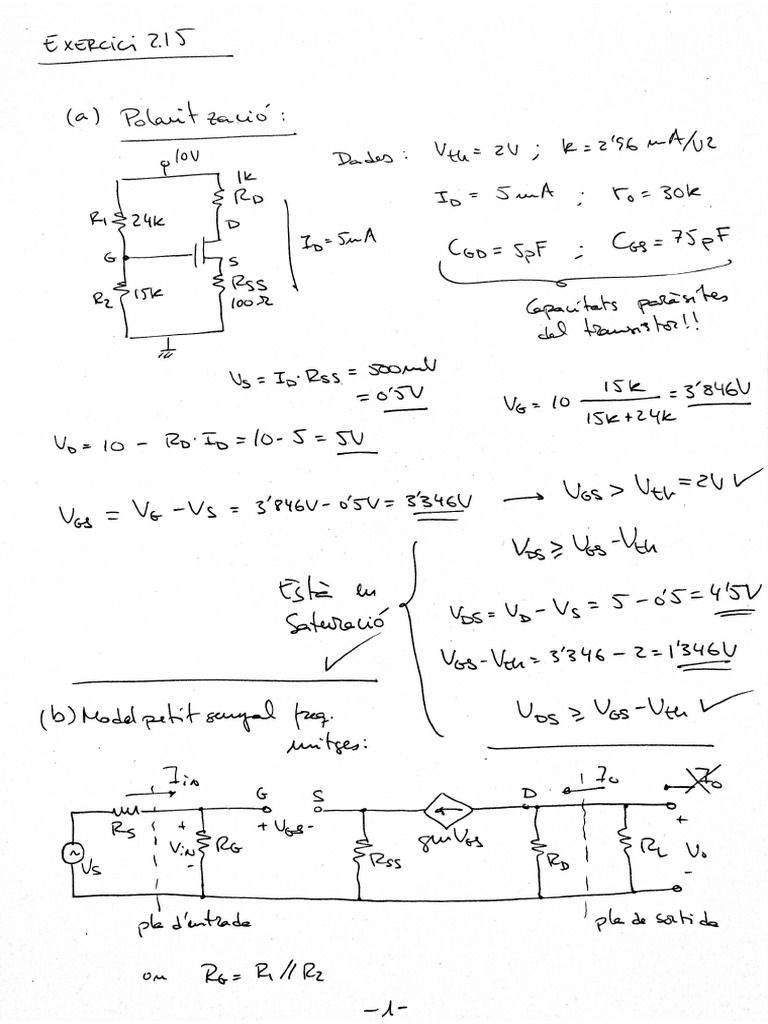 EXERCICI 2.15
(a) Polarització:
10V
1k
R_D
R_1 24k
D
G
S
R_2 15k
R_SS
100Ω
I_D = 5mA
Dades: V_th = 2V ; k = 2'96 mA/V2
I_D = 5mA ; r_o = 30k
C_GD = 5pF ; C_GS = 75pF
Capacitats paràsites
del transistor!!
V_S = I_D · R_SS = 500mV
= 0'5V
V_G = 10 15k / (15k + 24k) = 3'846V
V_D = 10 - R_D · I_D = 10 - 5 = 5V
V_GS = V_G - V_S = 3'846V - 0'5V = 3'346V → V_GS > V_th = 2V ✓
V_DS ≥ V_GS - V_th
Està en
Saturació ✓
V_DS = V_D - V_S = 5 - 0'5 = 4'5V
V_GS - V_th = 3'346 - 2 = 1'346V
V_DS ≥ V_GS - V_th ✓
(b) Model petit senyal freq.
mitges:
I_in
G
S
D
I_o
I_o
R_S
+
V_in
-
R_G
+ V_GS -
R_SS
gmV_GS
R_D
R_L
+
V_o
-
V_S
pla d'entrada
pla de sortida
on R_G = R_1 // R_2
-1-